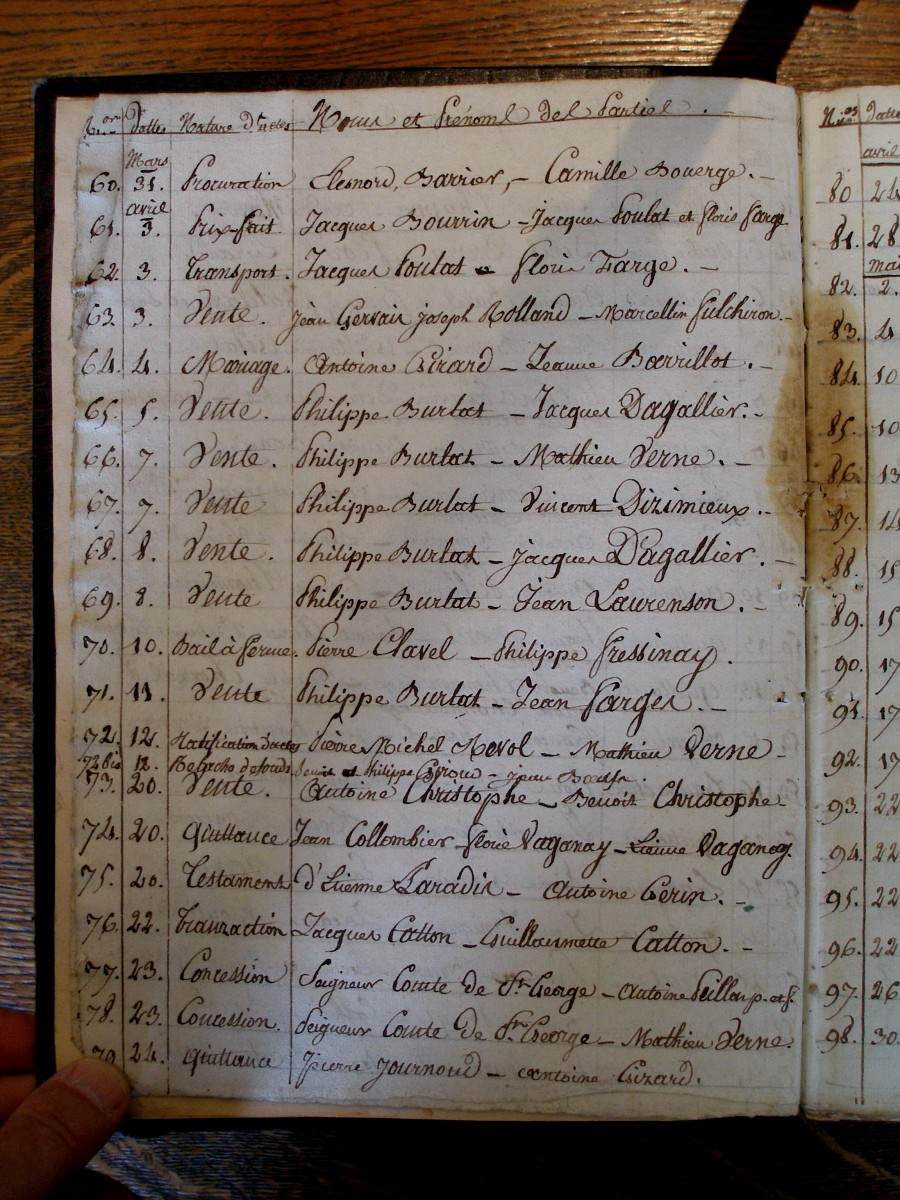 N.os Dattes Nature d'actes Noms et Prénoms des Parties.
Mars
60. 31. Procuration Barrier, - Camille Bouerge. -
avril
61. 3. Prix-fait Jacques Bourrin - Jacques Poulat et Floris Farge
62. 3. Transport. Jacques Poulat Floris Farge. -
63. 3. Vente. Jean Gervais Joseph Rolland - Marcellin Fulchiron. -
64. 4. Mariage. Antoine Girard - Jeanne Barrillot. -
65. 5. Vente. Philippe Burlat - Jacques Dagallier. -
66. 7. Vente. Philippe Burlat - Mathieu Verne. -
67. 7. Vente Philippe Burlat - Vincent Dizimieux. -
68. 8. Vente. Philippe Burlat - Jacques Dagallier. -
69. 8. Vente Philippe Burlat - Jean Laurenson. -
70. 10. Bail à ferme. Pierre Clavel - Philippe Fressinay.
71. 11. Vente Philippe Burlat - Jean Farges. -
72. 12. Ratification d'actes Pierre Michel Revol - Mathieu Verne -
72 bis 12. Philippe Giroud -
73. 20. Vente. Antoine Christophe - Benoit Christophe
74. 20. Quittance Jean Collombier - Florie Vaganay - Vaganay.
75. 20. Testament d'Etienne Paradis - Antoine Gerin. -
76. 22. Tranzaction Jacques Catton - Guillaumette Catton. -
77. 23. Concession Seigneur Comte de St. George - Antoine
78. 23. Concession. Seigneur Comte de St. George - Mathieu Verne.
79. 24. Quittance Pierre Journoud - Antoine Girard.
N.os Datte
avril
80 24
81. 28
mai
82. 2.
83. 4
84. 10
85. 10
86. 13
87. 14
88. 15
89. 15
90. 17
91. 17
92. 17
93. 22
94. 22
95. 22
96. 22
97. 26
98. 30